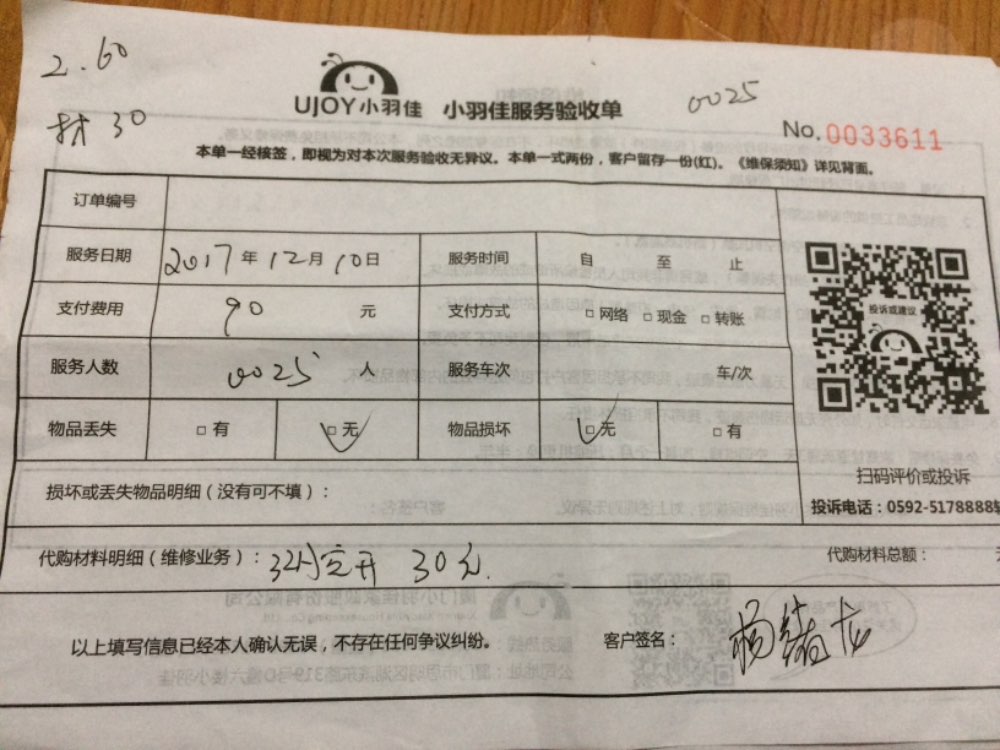 2.60
材 30
UJOY小羽佳 小羽佳服务验收单
0025
No.0033611
本单一经核签，即视为对本次服务验收无异议。本单一式两份，客户留存一份(红)。《维保须知》详见背面。
订单编号
服务日期 2017年12月10日 服务时间 自 至 止
支付费用 90 元 支付方式 □网络 □现金 □转账
投诉或建议
服务人数 0025 人 服务车次 车/次
物品丢失 □有 □无 物品损坏 □无 □有
扫码评价或投诉
损坏或丢失物品明细（没有可不填）：
投诉电话：0592-5178888
代购材料明细（维修业务）： 30元. 代购材料总额：
以上填写信息已经本人确认无误，不存在任何争议纠纷。 客户签名：